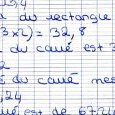 3,4
du rectangle
3 x 2) = 32,8
du carré est 3
2
carré mes
,24
est de 67,24